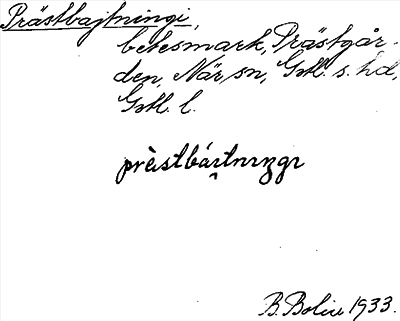 Prästbajtningi,
betesmark, Prästgår-
den, När sn, Gotl. s. hd,
Gotl. l.
prèstbáɪtnɪŋgɪ
B. Bolin 1933.